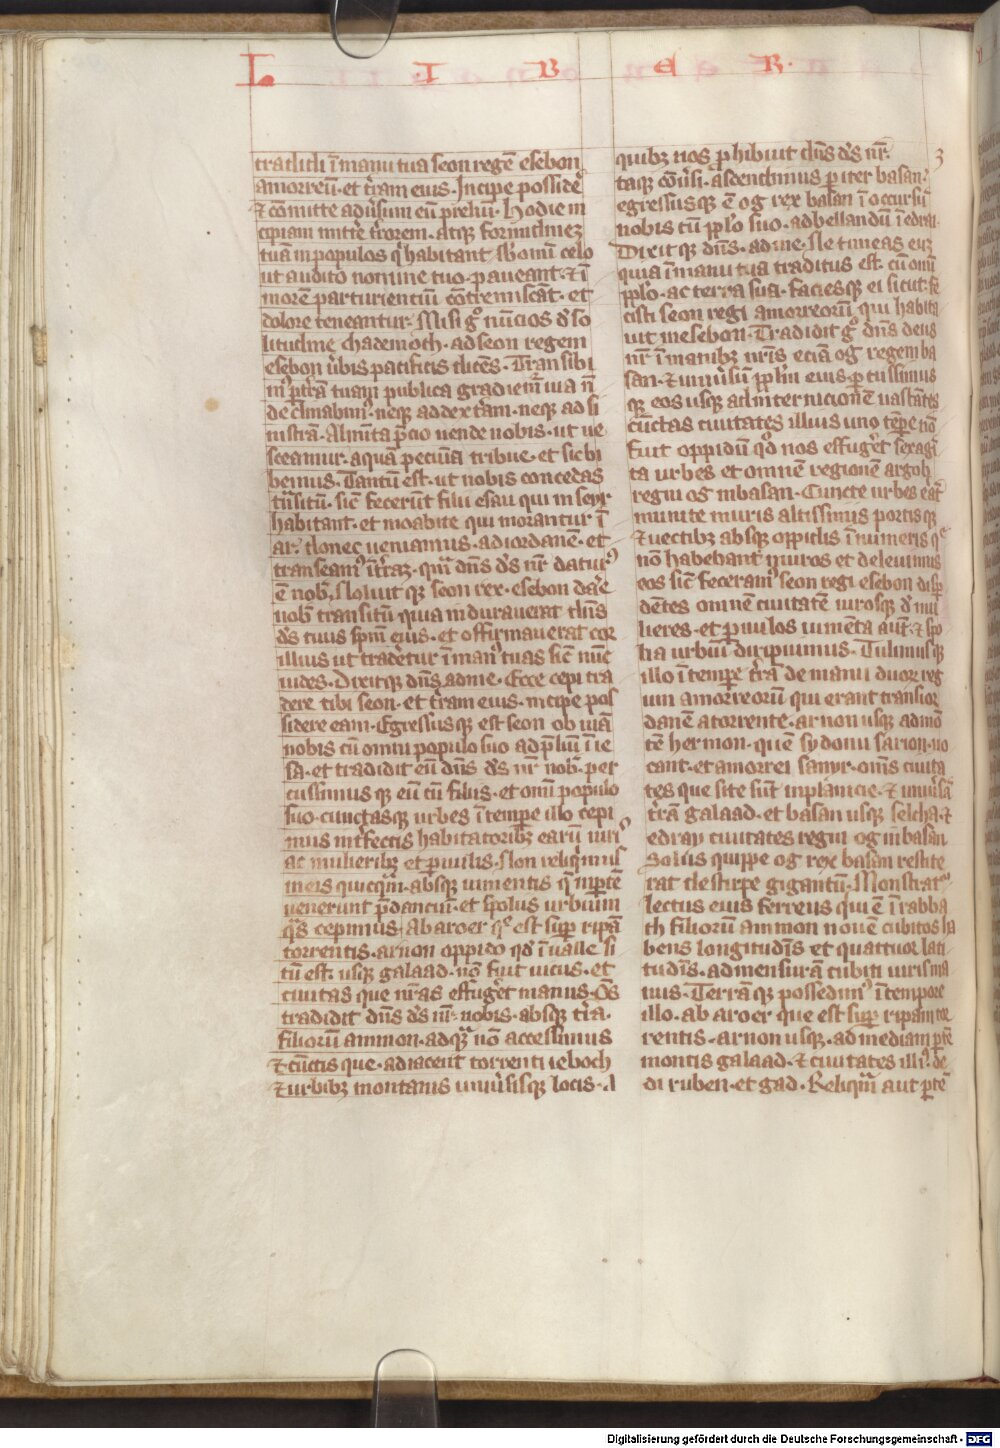 L I B E R
tradidi ī manu tua seon regē esebon
amorreū· et t̄ram eius· Incipe posside
⁊ cōmitte aduersum eū preliū· Hodie in
cipiam mitte t̄rorem· atq; formidinez
tuā in populos qͥ habitant sub omī celo
ut audito nomine tuo· paueant· ⁊ ī
morē parturientiū cōtremiscāt· et
dolore teneantur· Misi gͦ nūcios dͤ so
litudine chademoch· ad seon regem
esebon ūbis pacificis dicēs· Transibi
mͥ p t̄rā tuam publica gradiem̄ uia nō
declinabimͥ· neq; ad dext̄am· neq; ad si
nistrā· Alim̄ta p̄cio uende nobis· ut ue
sceamur· aquā pecuīa tribue· et sic bi
bemus· Tantū est· ut nobis concedas
t̄nsitū· sic̄ fecerūt filii esau qui in seyr
habitant· et moabite qui morantur ī
ar· donec ueniamus· ad iordanē· et
transeamꝰ ī t̄raz· quā dn̄s d̄s nr̄ daturꝰ
ē nob̄· Noluit q; seon rex· esebon dar̄e
nob̄ transitū quia indurauerat dn̄s
d̄s tuus sp̄m eius· et offirmauerat cor
illius ut trader̄tur ī manꝰ tuas sic̄ nūc
uides· Dixitq; dn̄s ad me· Ecce cepi tra
dere tibi seon· et t̄ram eius· incipe pos
sidere eam· Egressus q; est seon obuiā
nobis cū omni populo suo ad p̄liū ī ie
sa· et tradidit eū dn̄s d̄s nr̄ nob̄· per
cussimus q; eū cū filiis· et omī populo
suo· cunctasq; urbes ī tempe illo cepi
mus int̄fectis habitatorib; earū uirꝭ
ac mulierib; et p̄uulis· Non reliqͥmus
in eis quicq̄m· absq; iumentis q̄ in p̄tē
uenerunt p̄danciū· et spoliis urbium
qͣs cepimus· Ab aroer qͤ est sup̄ ripā
torrentis· arnon oppido qd̄ ī ualle si
tū est· usq; galaad· nō fuit uicus· et
ciuitas que nr̄as effuger̄t manus· Om̄s
tradidit dn̄s d̄s nr̄· nobis· absq; tr̄a·
filiorū ammon· ad quā nō accessimus
⁊ cūctis que· adiacent torrenti ieboch
⁊ urbib; montanis uniuersisq; locis· a
quib; nos p̄hibuit dn̄s d̄s nr̄·
3
Itaq; cōuersi· ascendimus p iter basan·
egressusq; ē og rex basan ī occursū
nobis cū pplo suo· ad bellandū ī edrai·
Dixit q; dn̄s· ad me· Ne timeas euz
quia ī manu tua traditus est· cū omī
pplo· ac terra sua· faciesq; ei sicut fe
cisti seon regi amorreorū qui habita
uit in esebon· Tradidit gͦ dn̄s deus
nr̄ ī manib; nr̄is eciā og regem ba
san· ⁊ uniuersū pplm eius p̄cussimus
q; eos usq; ad internicionē uastātes
cūctas ciuitates illius uno tēpe nō
fuit oppidū qd̄ nos effuger̄t sexagī
ta urbes et omnē regionē argob
regni og in basan· Cuncte urbes erāt
munite muris altissimis portisq;
⁊ uectib; absq; oppidis īnumeris qͤ
nō habebant muros et deleuimus
eos sic̄ feceramꝰ seon regi esebon disp̄
dētes omnē ciuitatē uirosq; ac mu
lieres· et p̄uulos iumēta aut̄· ⁊ spo
lia urbiū diripuimus· Tulimusq;
illo ī tempe t̄rā de manu duor̄ reg
um amorreorū qui erant transior
danē a torrente· arnon usq; ad mō
tē hermon· quē sydonii sarion· uo
cant· et amorrei sanyr· om̄s ciuita
tes que site sūt in planicie· ⁊ uniuersā
t̄rā galaad· et basan usq; selcha· ⁊
edray ciuitates regni og in basan
Solus quippe og rex basan restite
rat de stirpe gigantū· Monstratꝰ
lectus eius ferreus qui ē ī rabba
th filiorū ammon nouē cubitos ha
bens longitudīs et quattuor lati
tudīs· ad mensurā cubiti uiris ma
nus· Terrā q; possedimꝰ ī tempore
illo· ab aroer que est sup̄ ripam tor
rentis· arnon usq; ad mediam p̄tē
montis galaad· ⁊ ciuitates illiꝰ· de
di ruben· et gad· Reliquā aut p̄tē
Digitalisierung gefördert durch die Deutsche Forschungsgemeinschaft - DFG